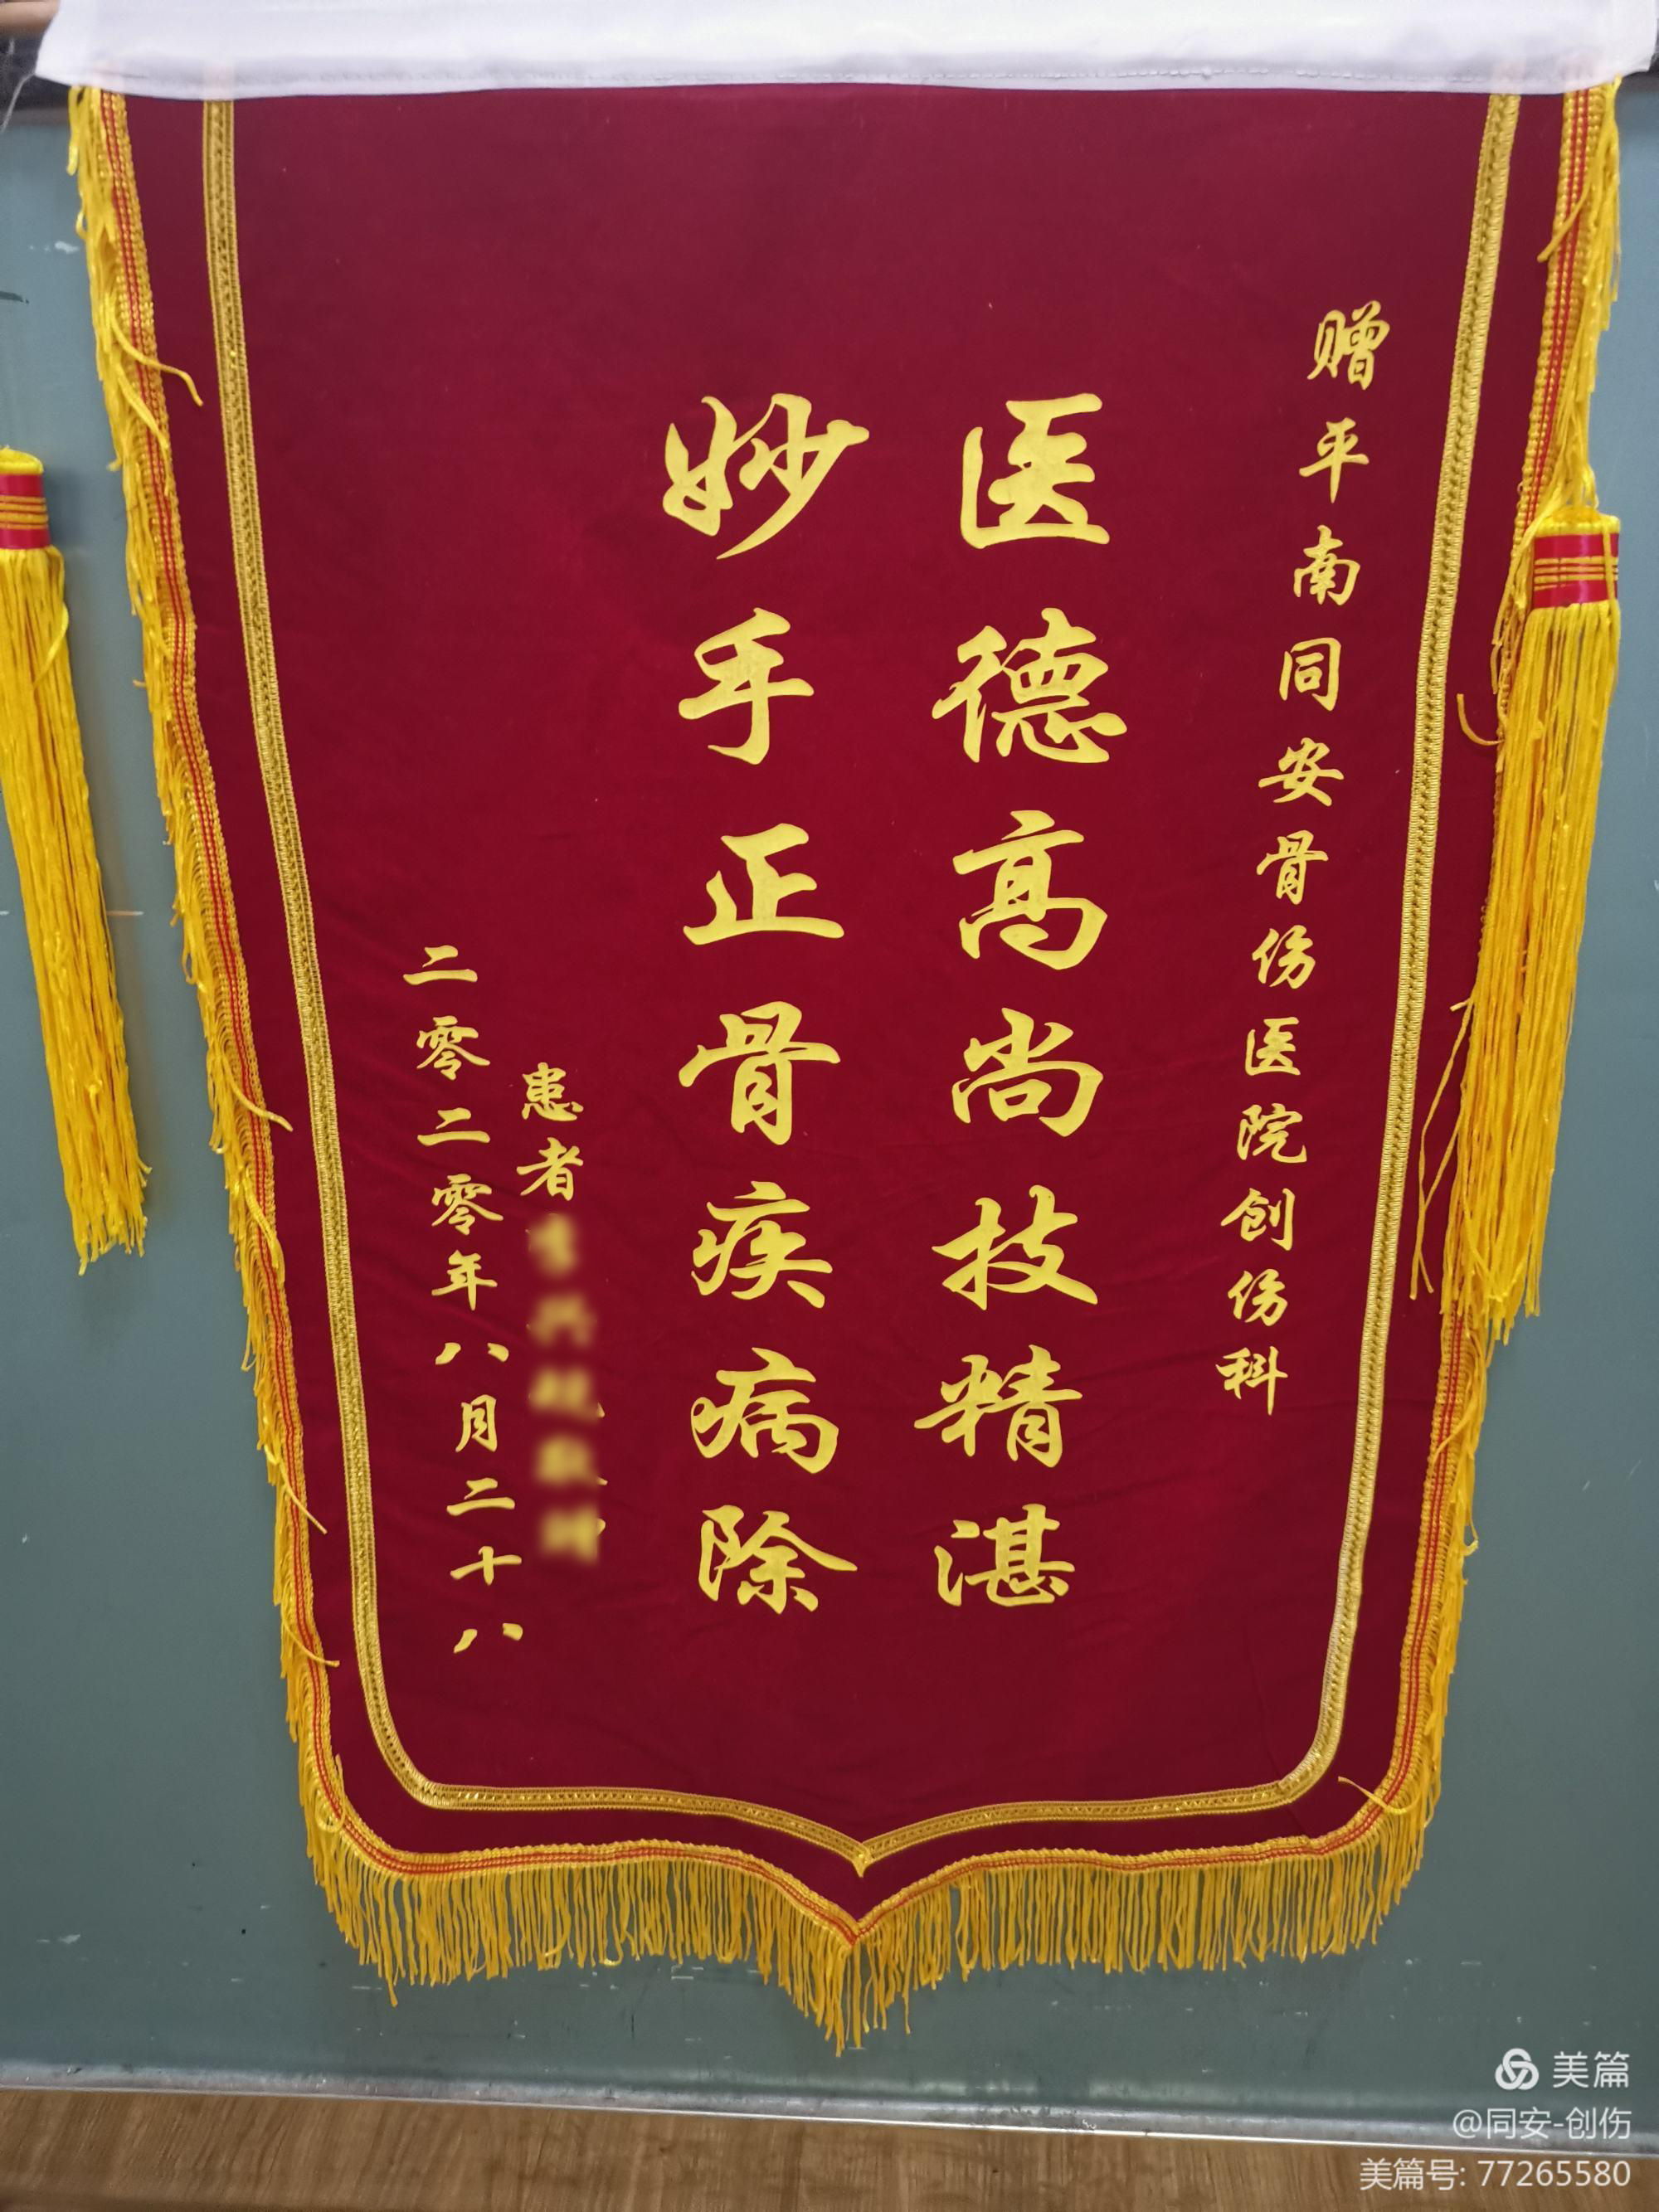 赠平南同安骨伤医院创伤科
医德高尚技精湛
妙手正骨疾病除
患者
二零二零年八月二十八
美篇
@同安-创伤
美篇号: 77265580